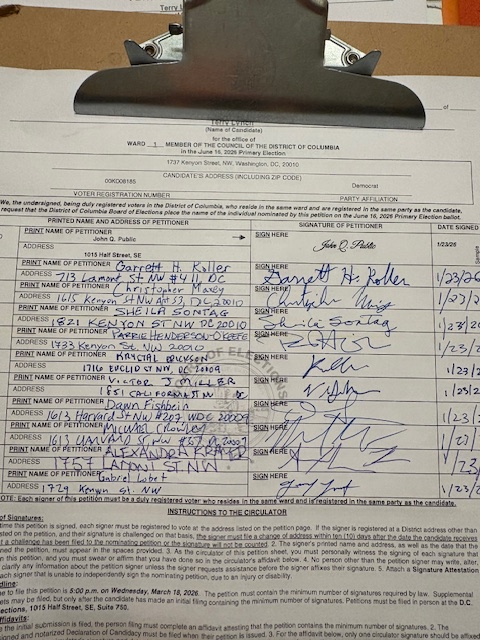 Terry L
of
Terry Lynch
(Name of Candidate)
for the office of
WARD 1 MEMBER OF THE COUNCIL OF THE DISTRICT OF COLUMBIA
in the June 16, 2026 Primary Election
1737 Kenyon Street, NW, Washington, DC, 20010
CANDIDATE'S ADDRESS (INCLUDING ZIP CODE)
00KD08185 Democrat
VOTER REGISTRATION NUMBER PARTY AFFILIATION
We, the undersigned, being duly registered voters in the District of Columbia, who reside in the same ward and are registered in the same party as the candidate,
request that the District of Columbia Board of Elections place the name of the individual nominated by this petition on the June 16, 2026 Primary Election ballot.
PRINTED NAME AND ADDRESS OF PETITIONER SIGNATURE OF PETITIONER DATE SIGNED
PRINT NAME OF PETITIONER SIGN HERE
John Q. Public John Q. Public 1/23/26
ADDRESS 1015 Half Street, SE
PRINT NAME OF PETITIONER Garrett H. Koller SIGN HERE Garrett H. Koller 1/23/26
ADDRESS 713 Lamont St NW #411 DC
PRINT NAME OF PETITIONER Christopher SIGN HERE
ADDRESS 1615 Kenyon St NW Apt 53, DC 20010
PRINT NAME OF PETITIONER SHEILA SONTAG SIGN HERE Sheila Sontag
ADDRESS 1821 KENYON ST NW DC 20010
PRINT NAME OF PETITIONER HENDERSON-O'KEEFE SIGN HERE
ADDRESS 1733 Kenyon St. NW 20010
PRINT NAME OF PETITIONER KRYSTAL ERICKSON SIGN HERE
ADDRESS 1716 EUCLID ST NW, DC 20009
PRINT NAME OF PETITIONER VICTOR J MILLER SIGN HERE
ADDRESS 1851 CALIFORNIA ST NW
PRINT NAME OF PETITIONER Dawn Fishbein SIGN HERE
ADDRESS 1613 Harvard St NW #207 WDC 20009
PRINT NAME OF PETITIONER MICHAEL CROWLEY SIGN HERE
ADDRESS 1613 HARVARD ST NW
PRINT NAME OF PETITIONER ALEXANDRA KRAMER SIGN HERE
ADDRESS 1757 LAMONT ST NW
PRINT NAME OF PETITIONER Gabriel Lobet SIGN HERE
ADDRESS 1729 Kenyon St. NW
NOTE: Each signer of this petition must be a duly registered voter who resides in the same ward and is registered in the same party as the candidate.
INSTRUCTIONS TO THE CIRCULATOR
of Signatures:
time this petition is signed, each signer must be registered to vote at the address listed on the petition page. If the signer is registered at a District address other than
sted on the petition, and their signature is challenged on that basis, the signer must file a change of address within ten (10) days after the date the candidate receives
f a challenge has been filed to the nominating petition or the signature will not be counted. 2. The signer's printed name and address, as well as the date that the
gned the petition, must appear in the spaces provided. 3. As the circulator of this petition sheet, you must personally witness the signing of each signature that
on this petition and you must swear or affirm that you have done so in the circulator's affidavit below. 4. No person other than the petition signer may write, alter,
clarify any information about the petition signer unless the signer requests assistance before the signer affixes their signature. 5. Attach a Signature Attestation
each signer that is unable to independently sign the nominating petition, due to an injury or disability.
dline:
e to file this petition is 5:00 p.m. on Wednesday, March 18, 2026. The petition must contain the minimum number of signatures required by law. Supplemental
be filed, but only after the candidate has made an initial filing containing the minimum number of signatures. Petitions must be filed in person at the D.C.
ections, 1015 Half Street, SE, Suite 750.
ffidavits:
is the initial submission is filed, the person filing must complete an affidavit attesting that the petition contains the minimum number of signatures. 2. The
igned and notarized Declaration of Candidacy must be filed when their petition is issued. 3. For the affidavit below, only one circulator signature should be affixed